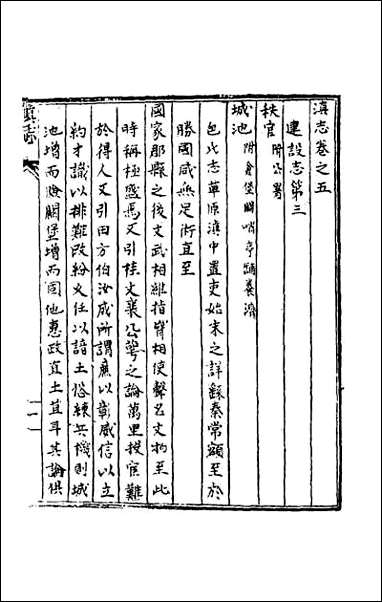 滇志卷之五
建設志第三
秩官 附公署
城池 附倉堡關哨亭舖養濟
包氏志草原滇中置吏始末之詳繇秦常頞至於
勝國咸無足術直至
國家郡縣之後文武相維指臂相使聲名文物至此
時稱極盛焉又引桂文襄公萼之論萬里授官難
於得人又引田方伯汝成所謂廉以彰威信以立
約才識以排難改紛久任以諳土俗練兵機則城
池增而險關堡增而固他惠政直土苴耳其論俱
滇志